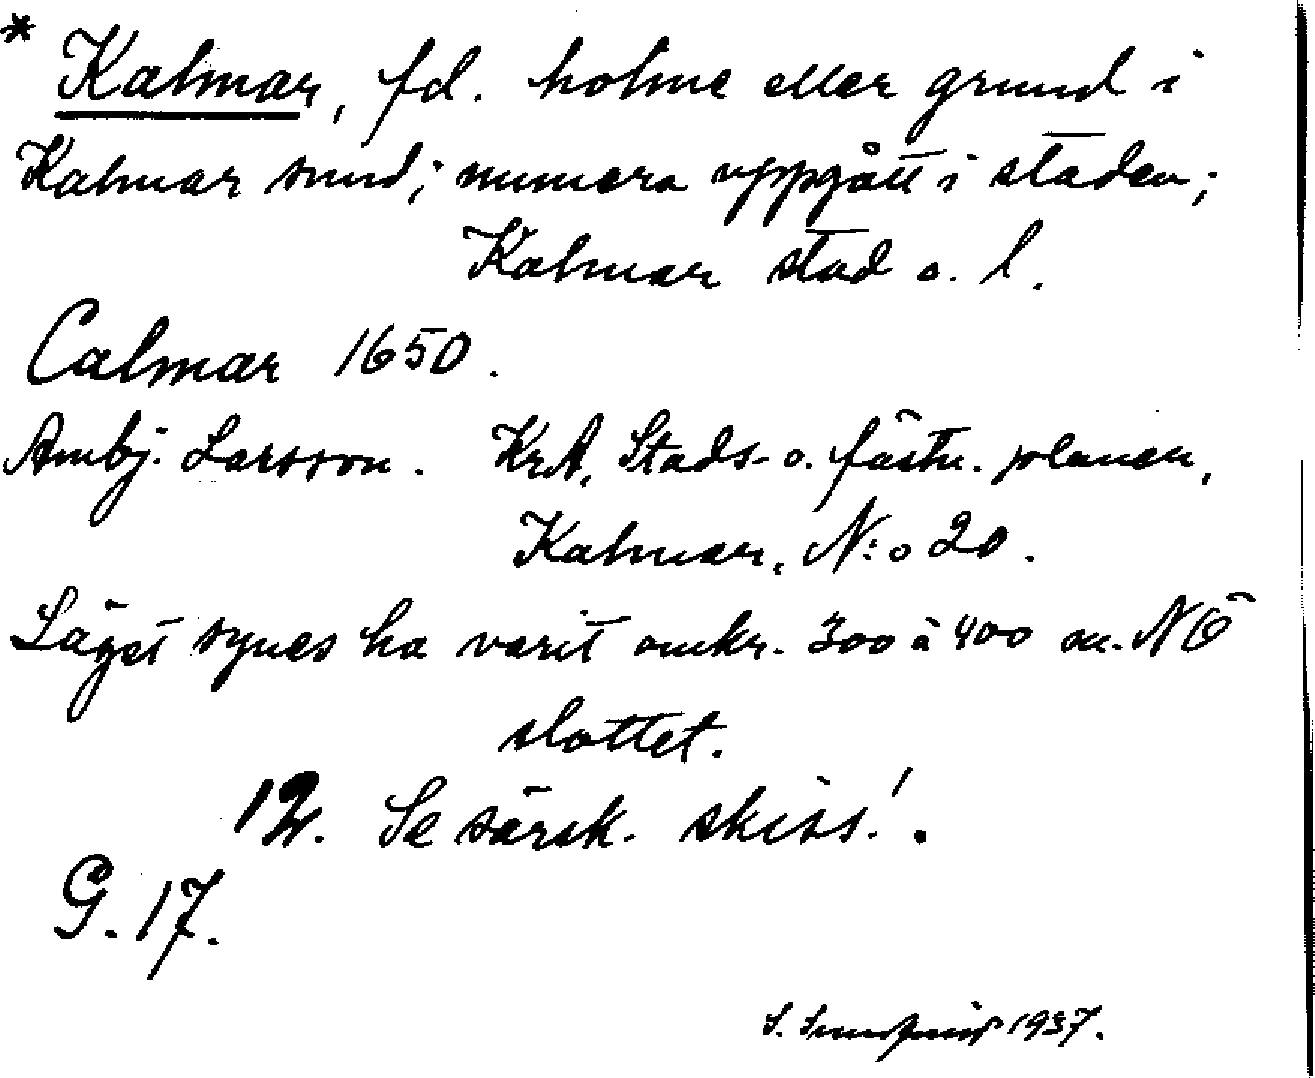 * Kalmar, fd. holme eller grund i
Kalmar sund; numera uppgått i staden;
Kalmar stad o. l.
Calmar 1650.
Ambj. Larsson. KrA, Stads- o. fästn. planer,
Kalmar, N:o 20.
Läget synes ha varit omkr. 300 à 400 m. NÖ
slottet.
12. Se särsk. skiss!.
G. 17.
S. Sundqvist 1937.